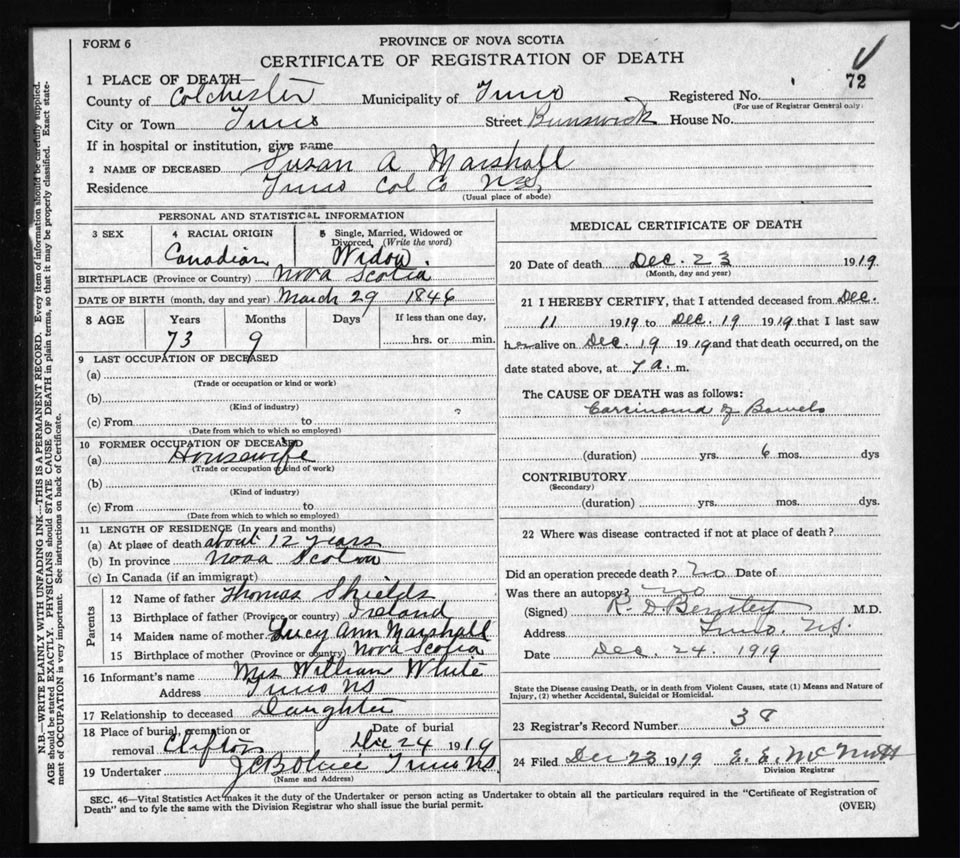 FORM 6
PROVINCE OF NOVA SCOTIA
CERTIFICATE OF REGISTRATION OF DEATH
72
1 PLACE OF DEATH—
County of Colchester Municipality of Truro Registered No.
(For use of Registrar General only)
City or Town Truro Street Brunswick House No.
If in hospital or institution, give name
2 NAME OF DECEASED Susan A Marshall
Residence Truro Col Co NS.
(Usual place of abode)
PERSONAL AND STATISTICAL INFORMATION
3 SEX 4 RACIAL ORIGIN 5 Single, Married, Widowed or Divorced, (Write the word)
Canadian Widow.
BIRTHPLACE (Province or Country) Nova Scotia
DATE OF BIRTH (month, day and year) March 29 1846
8 AGE Years Months Days If less than one day,
73 9 hrs. or min.
9 LAST OCCUPATION OF DECEASED
(a)
(Trade or occupation or kind or work)
(b)
(Kind of industry)
(c) From to
(Date from which to which so employed)
10 FORMER OCCUPATION OF DECEASED
(a) Housewife
(Trade or occupation or kind of work)
(b)
(Kind of industry)
(c) From to
(Date from which to which so employed)
11 LENGTH OF RESIDENCE (In years and months)
(a) At place of death about 12 years
(b) In province Nova Scotia
(c) In Canada (if an immigrant)
Parents
12 Name of father Thomas Shields
13 Birthplace of father (Province or country) Ireland
14 Maiden name of mother Lucy Ann Marshall
15 Birthplace of mother (Province or country) Nova Scotia
16 Informant's name Mrs William White
Address Truro NS
17 Relationship to deceased Daughter
18 Place of burial, cremation or removal Clifton Date of burial Dec 24 1919
19 Undertaker Truro NS
(Name and Address)
MEDICAL CERTIFICATE OF DEATH
20 Date of death Dec. 23 1919
(Month, day and year)
21 I HEREBY CERTIFY, that I attended deceased from Dec.
11 1919 to Dec. 19 1919 that I last saw
her alive on Dec. 19 1919 and that death occurred, on the
date stated above, at 7 a. m.
The CAUSE OF DEATH was as follows:
Carcinoma of Bowels
(duration) yrs. 6 mos. dys
CONTRIBUTORY
(Secondary)
(duration) yrs. mos. dys.
22 Where was disease contracted if not at place of death?
Did an operation precede death? No Date of
Was there an autopsy? No
(Signed) R. D Bentley M.D.
Address Truro, NS.
Date Dec. 24. 1919
State the Disease causing Death, or in death from Violent Causes, state (1) Means and Nature of
Injury, (2) whether Accidental, Suicidal or Homicidal.
23 Registrar's Record Number 38
24 Filed Dec 23 1919 E. E. McNutt
Division Registrar
SEC. 46—Vital Statistics Act makes it the duty of the Undertaker or person acting as Undertaker to obtain all the particulars required in the "Certificate of Registration of
Death" and to fyle the same with the Division Registrar who shall issue the burial permit.
(OVER)
N.B.—WRITE PLAINLY WITH UNFADING INK—THIS IS A PERMANENT RECORD. Every item of information should be carefully supplied.
AGE should be stated EXACTLY. PHYSICIANS should STATE CAUSE OF DEATH in plain terms, so that it may be properly classified. Exact state-
ment of OCCUPATION is very important. See instructions on back of Certificate.